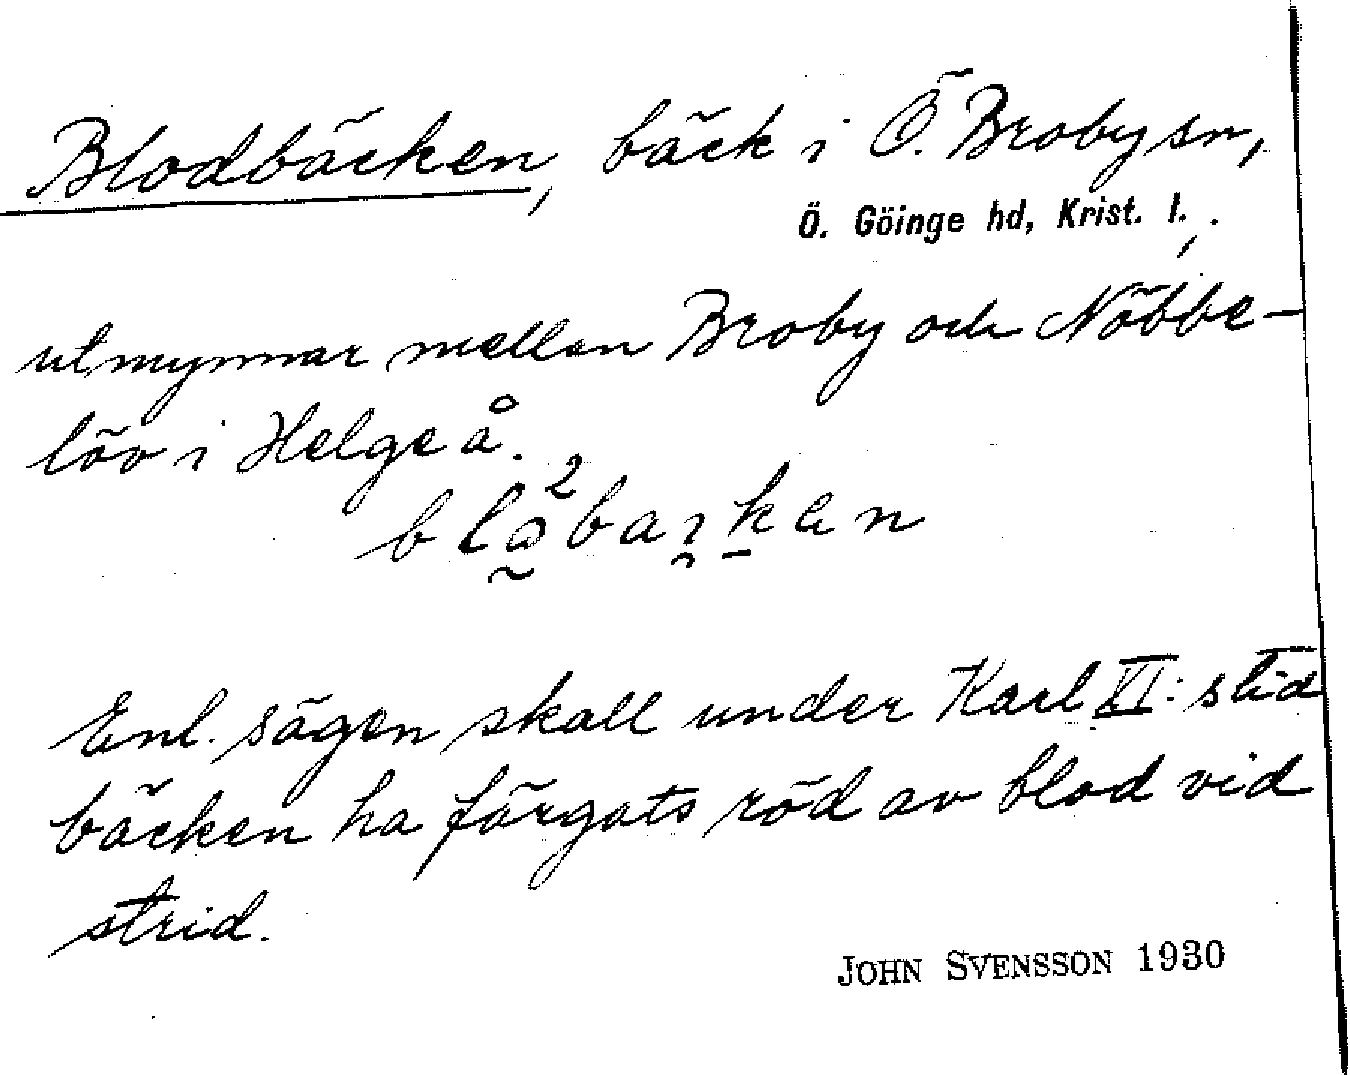 Blodbäcken, bäck i Ö. Broby sn,
Ö. Göinge hd, Krist. l.,
utmynnar mellan Broby och Nöbbe-
löv i Helgeå.
Enl. sägen skall under Karl XI:s tid
bäcken ha färgats röd av blod vid
strid.
JOHN SVENSSON 1930